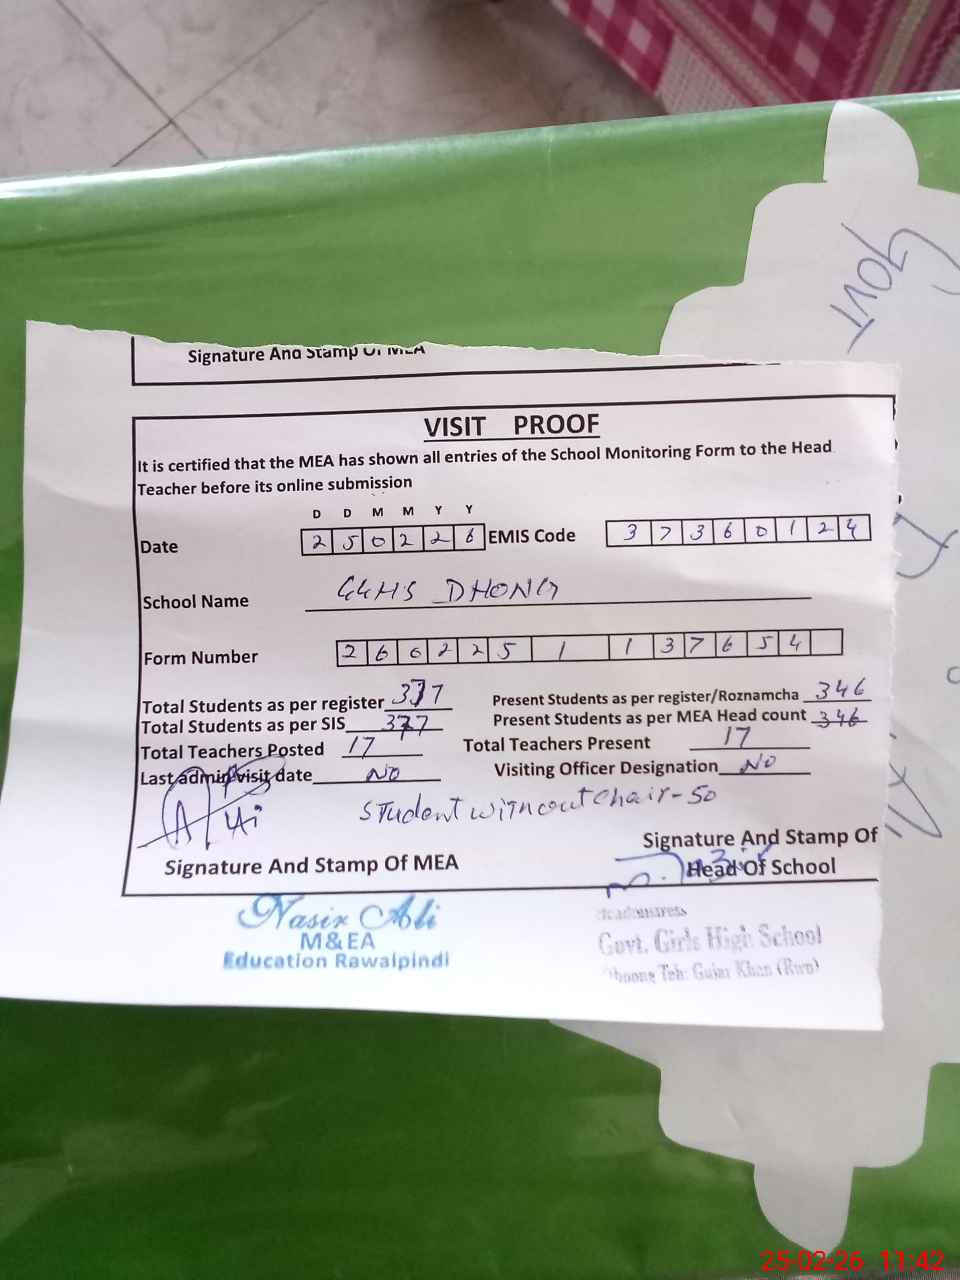 GOVT
Signature And Stamp Of MEA
VISIT PROOF
It is certified that the MEA has shown all entries of the School Monitoring Form to the Head
Teacher before its online submission
D D M M Y Y
Date 2 5 0 2 2 6 EMIS Code 3 7 3 6 0 1 2 4
School Name GGHS DHONG
Form Number 2 6 0 2 2 5 1 1 3 7 6 5 4
Total Students as per register 377 Present Students as per register/Roznamcha 346
Total Students as per SIS 377 Present Students as per MEA Head count 346
Total Teachers Posted 17 Total Teachers Present 17
Last admin visit date NO Visiting Officer Designation NO
Student without chair-50
Signature And Stamp Of MEA
Signature And Stamp Of
Head Of School
Nasir Ali
M&EA
Education Rawalpindi
Headmistress
Govt. Girls High School
Dhoong Teh: Gujar Khan (Rwp)
25-02-26 11:42